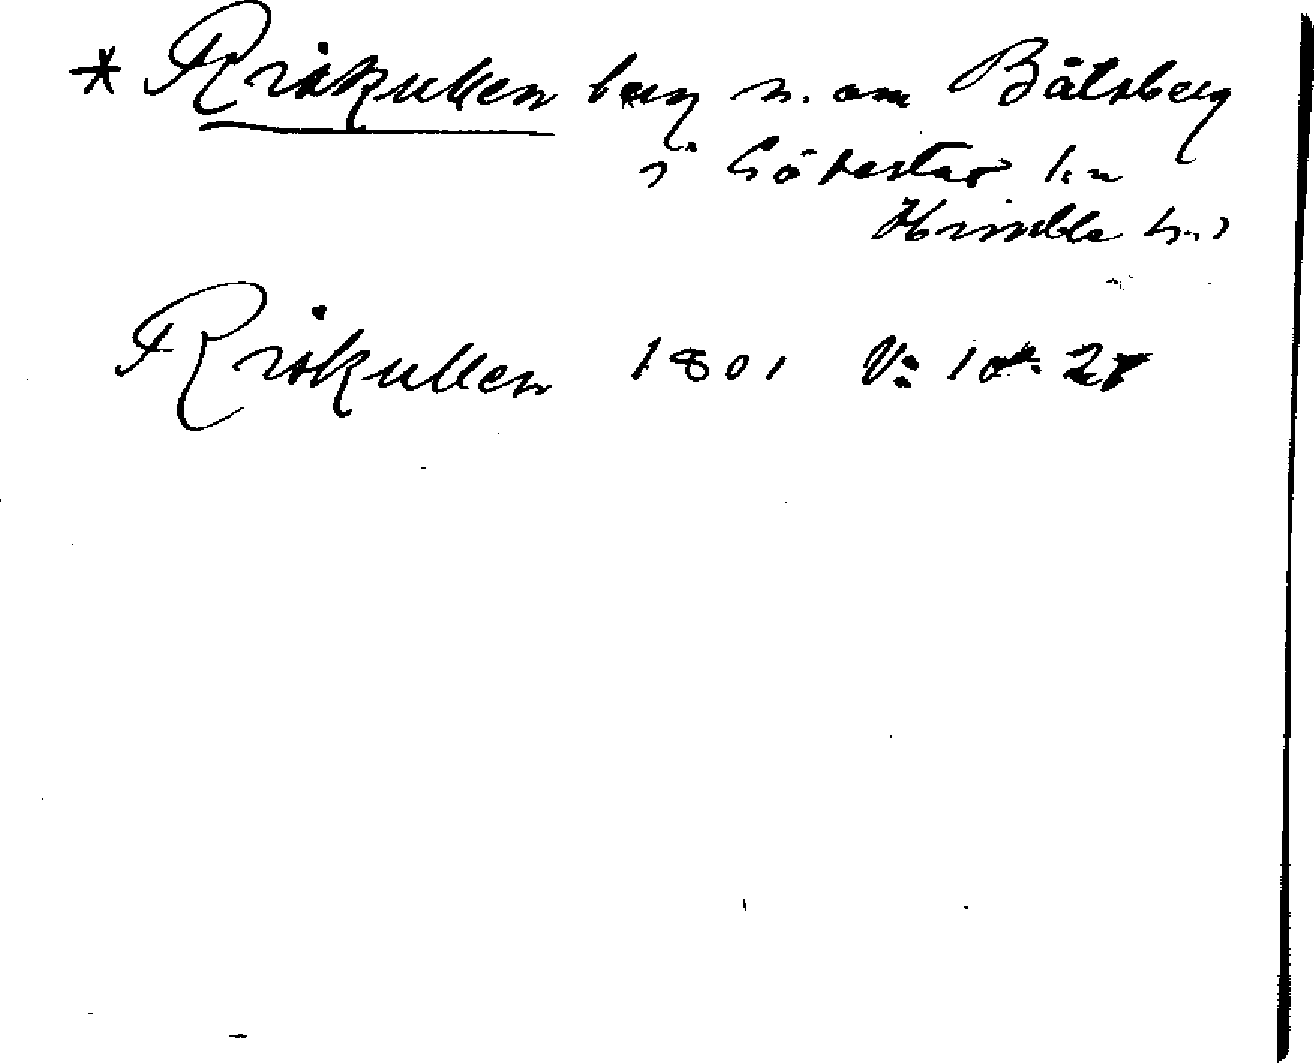 * Riskullen berg n. om Båtsberg
i Gödestad sn
Himble hd
Riskullen 1801 V: 18: 28